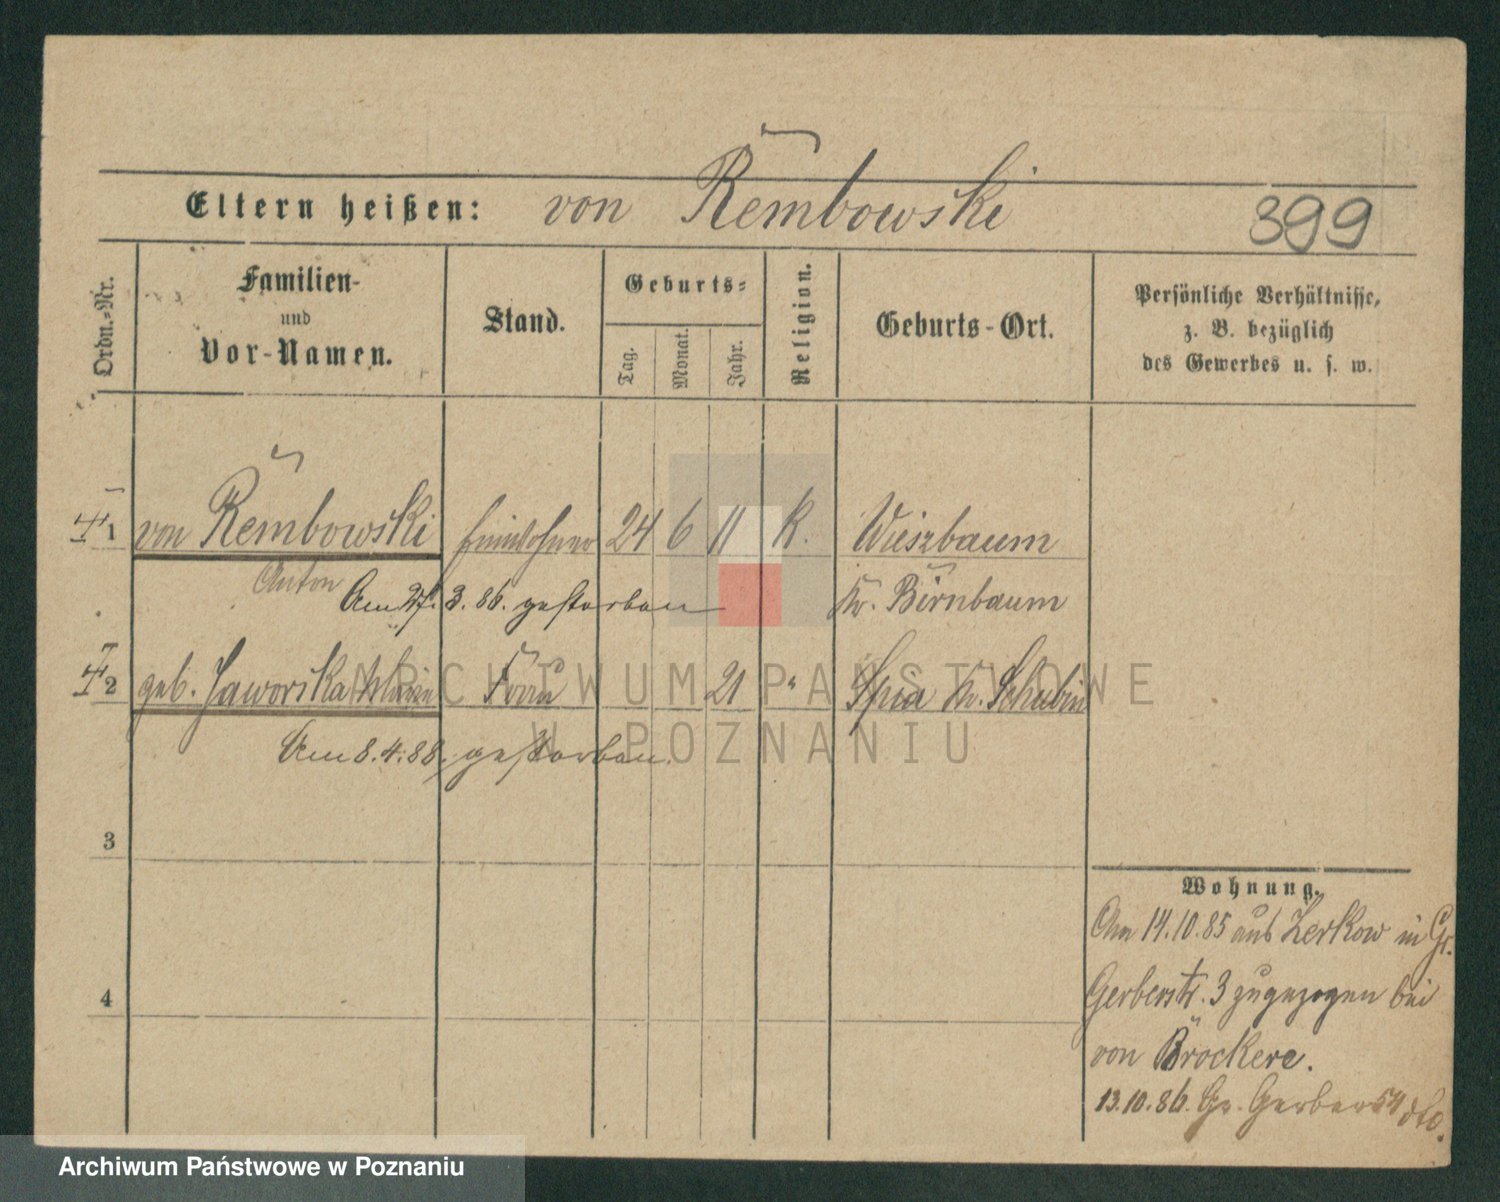 Eltern heißen: von Rembowski
399
Ordn.-Nr.
Familien-
und
Vor-Namen.
Stand.
Geburts-
Tag.
Monat.
Jahr.
Religion.
Geburts-Ort.
Persönliche Verhältnisse,
z. B. bezüglich
des Gewerbes u. s. w.
1 von Rembowski 24 6 11 k. Wieszbaum
Anton Kr. Birnbaum
Am 27. 3. 86. gestorben
2 geb. Jaworska Frau 21 " Spia Kr. Schubin
Am 8. 4. 88. gestorben.
3
4
Wohnung.
Am 14.10.85 aus Zerkow in Gr.
Gerberstr. 3 zugezogen bei
von Bröckere.
13.10.86. Gr. Gerber 54 dto.
ARCHIWUM PAŃSTWOWE
W POZNANIU
Archiwum Państwowe w Poznaniu